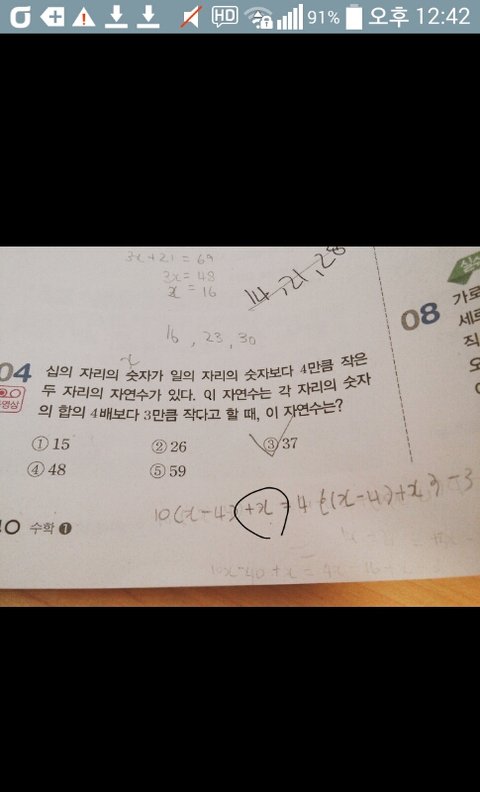 HD 91% 오후 12:42
3x+21 = 69
3x = 48
x = 16
14, 21, 28
16, 23, 30
x
04 십의 자리의 숫자가 일의 자리의 숫자보다 4만큼 작은
두 자리의 자연수가 있다. 이 자연수는 각 자리의 숫자
의 합의 4배보다 3만큼 작다고 할 때, 이 자연수는?
① 15 ② 26 ③ 37
④ 48 ⑤ 59
10(x-4)+x = 4{(x-4)+x}-3
수학 ❶
08
가로
세로
직
오